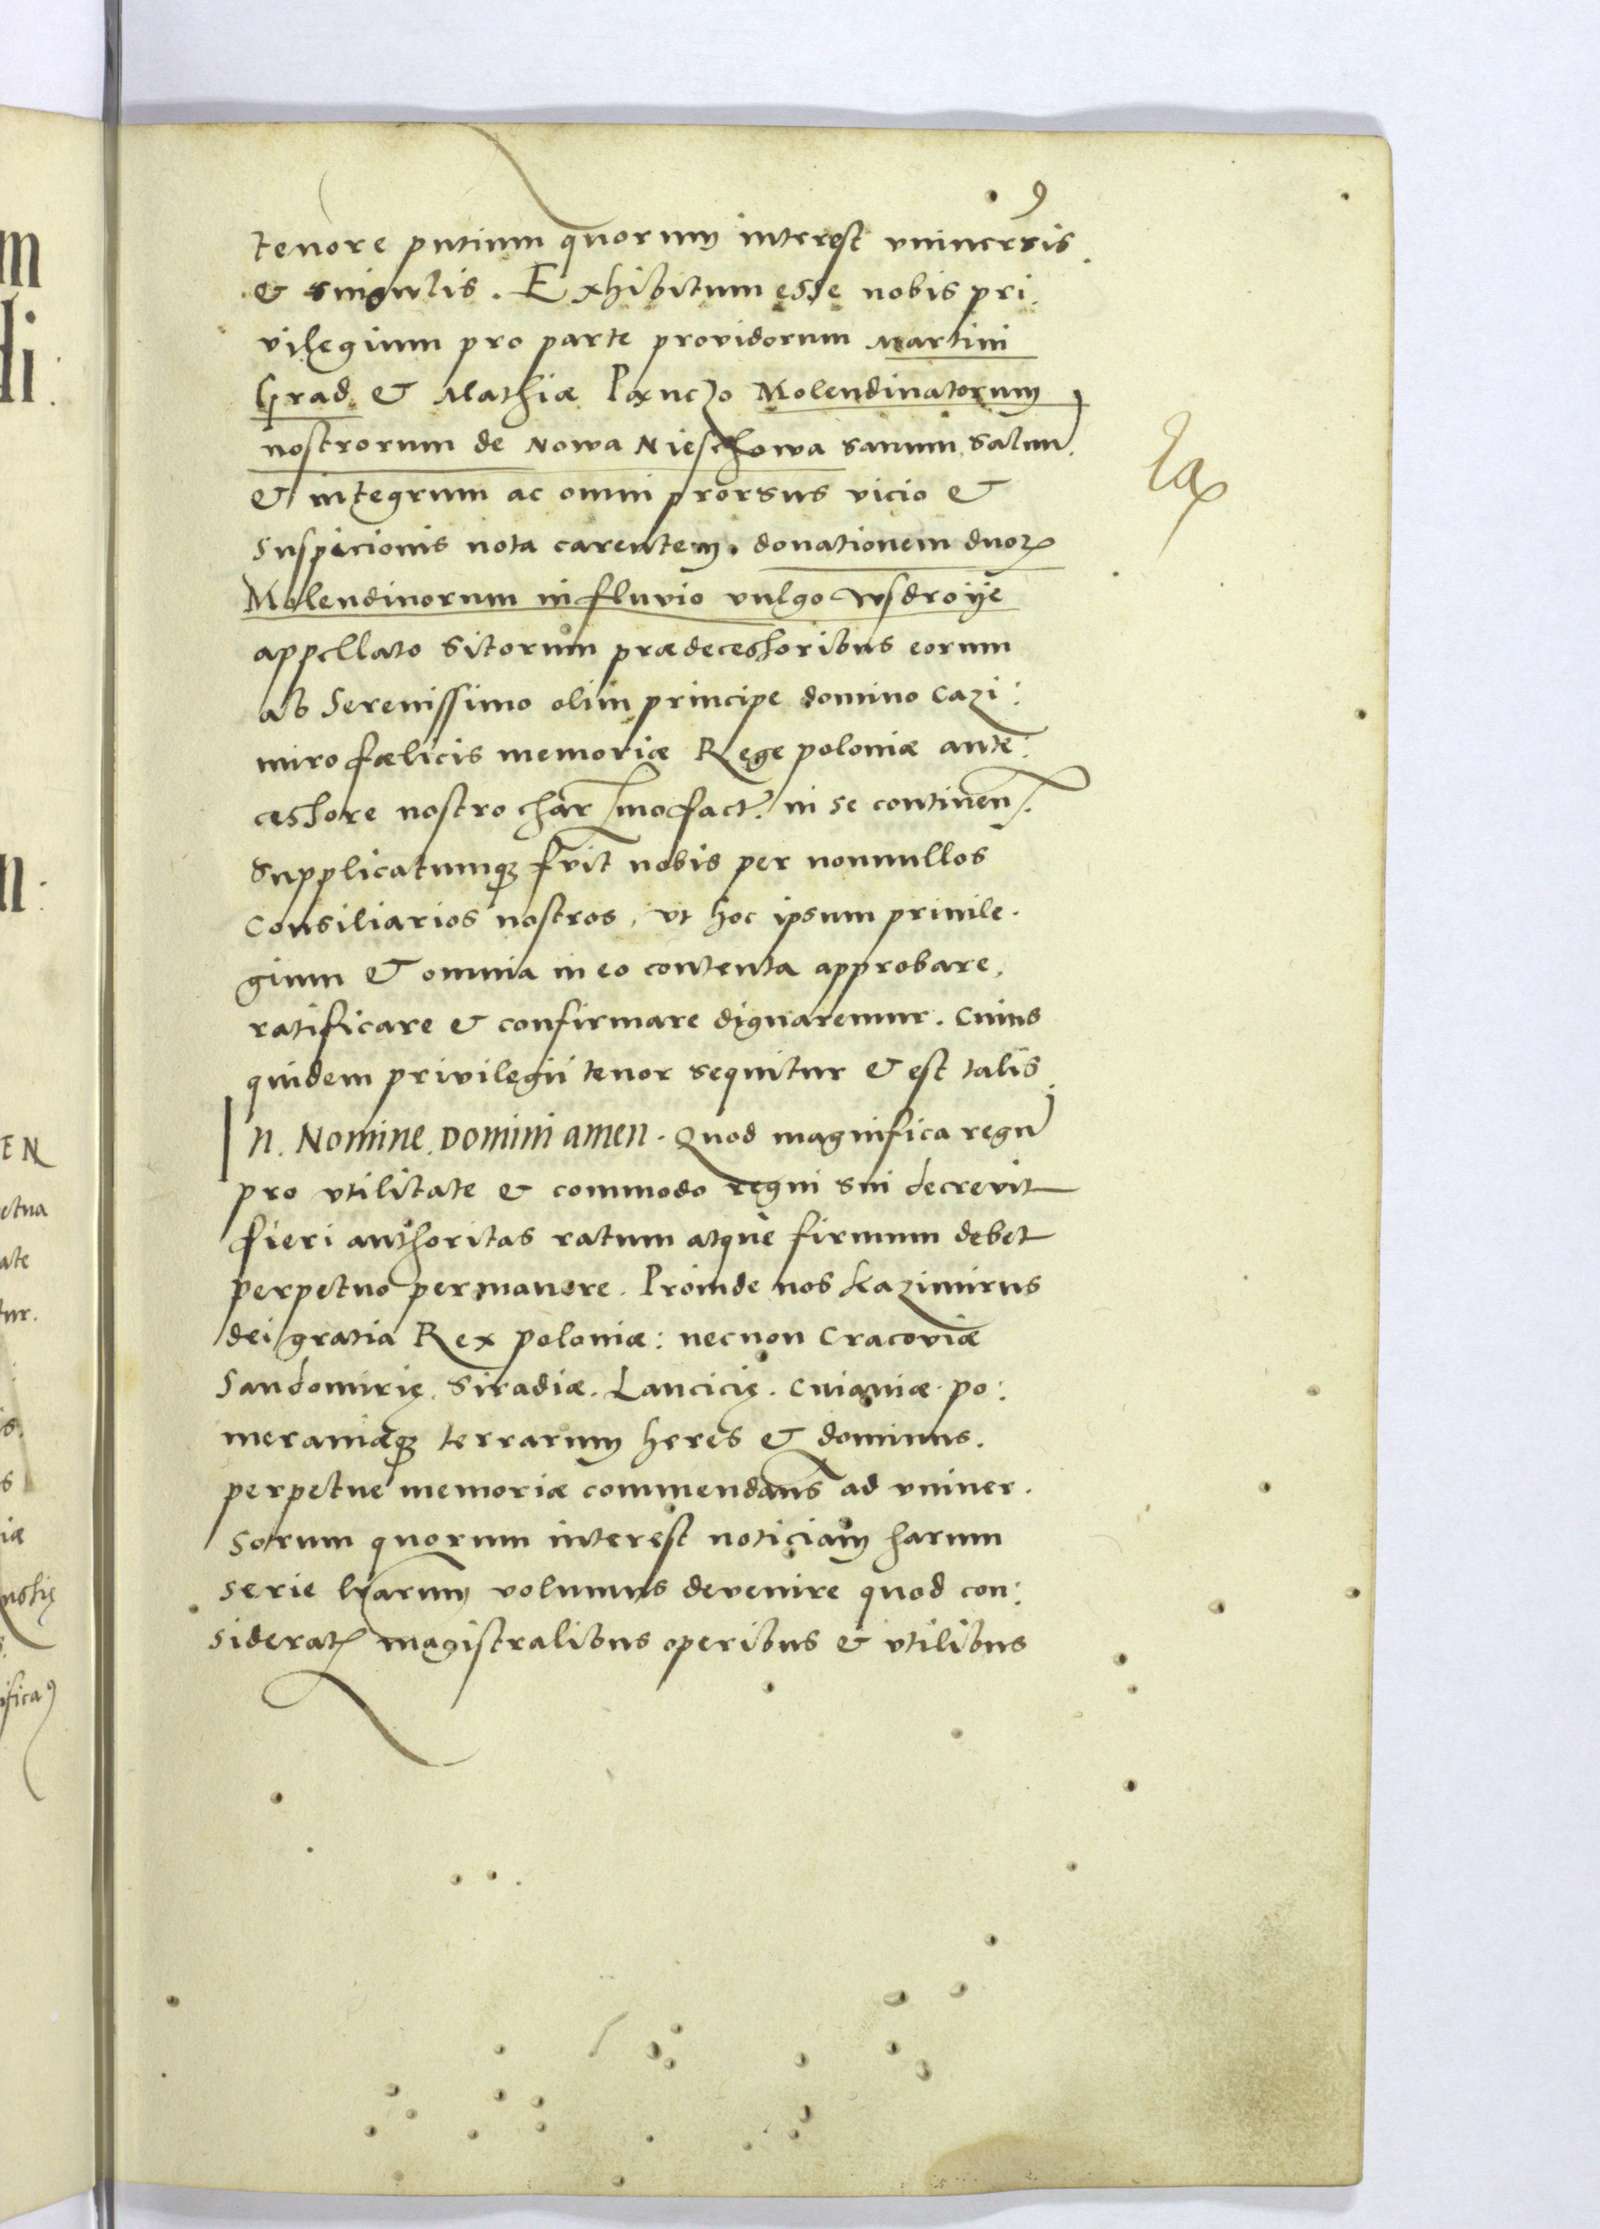 9
tenore pntium quorum interest vniuersis
& singulis. Exhibitum esse nobis pri.
vilegium pro parte providorum Martini
Grad & Mathiæ Panczo Molendinatorum
nostrorum de Nowa Nieschowa sanum, saluu
& integrum ac omni prorsus vicio &
suspicionis nota carentem. donationem duoꝝ
Molendinorum in fluvio vulgo wsdroije
appellato sitorum prædecessoribus eorum
ab Serenissimo olim principe domino Cazi:
miro fælicis memoriæ Rege poloniæ ante:
cessore nostro char[mo fact. in se continen.
Supplicatumqꝫ fvit nobis per nonnullos
Consiliarios nostros, vt hoc ipsum priuile.
gium & omnia in eo contenta approbare,
ratificare & confirmare dignaremur. Cuius
quidem privilegii tenor sequitur & est talis
In. Nomine. Domini amen. Quod magnifica regu
pro vtilitate & commodo regni sui decrevit
fieri authoritas ratum atque firmum debet
perpetuo permanere. Proinde nos Kazimirus
dei gratia Rex poloniæ: necnon Cracoviæ
Sandomirię. Siradiæ. Lancicię. Cuiaviæ. po:
meraniæqꝫ terrarum heres & dominus.
perpetue memoriæ commendans ad vniuer.
sorum quorum interest noticiam harum
serie lrarum volumus devenire quod con:
siderat magistralibus operibus & vtilibus